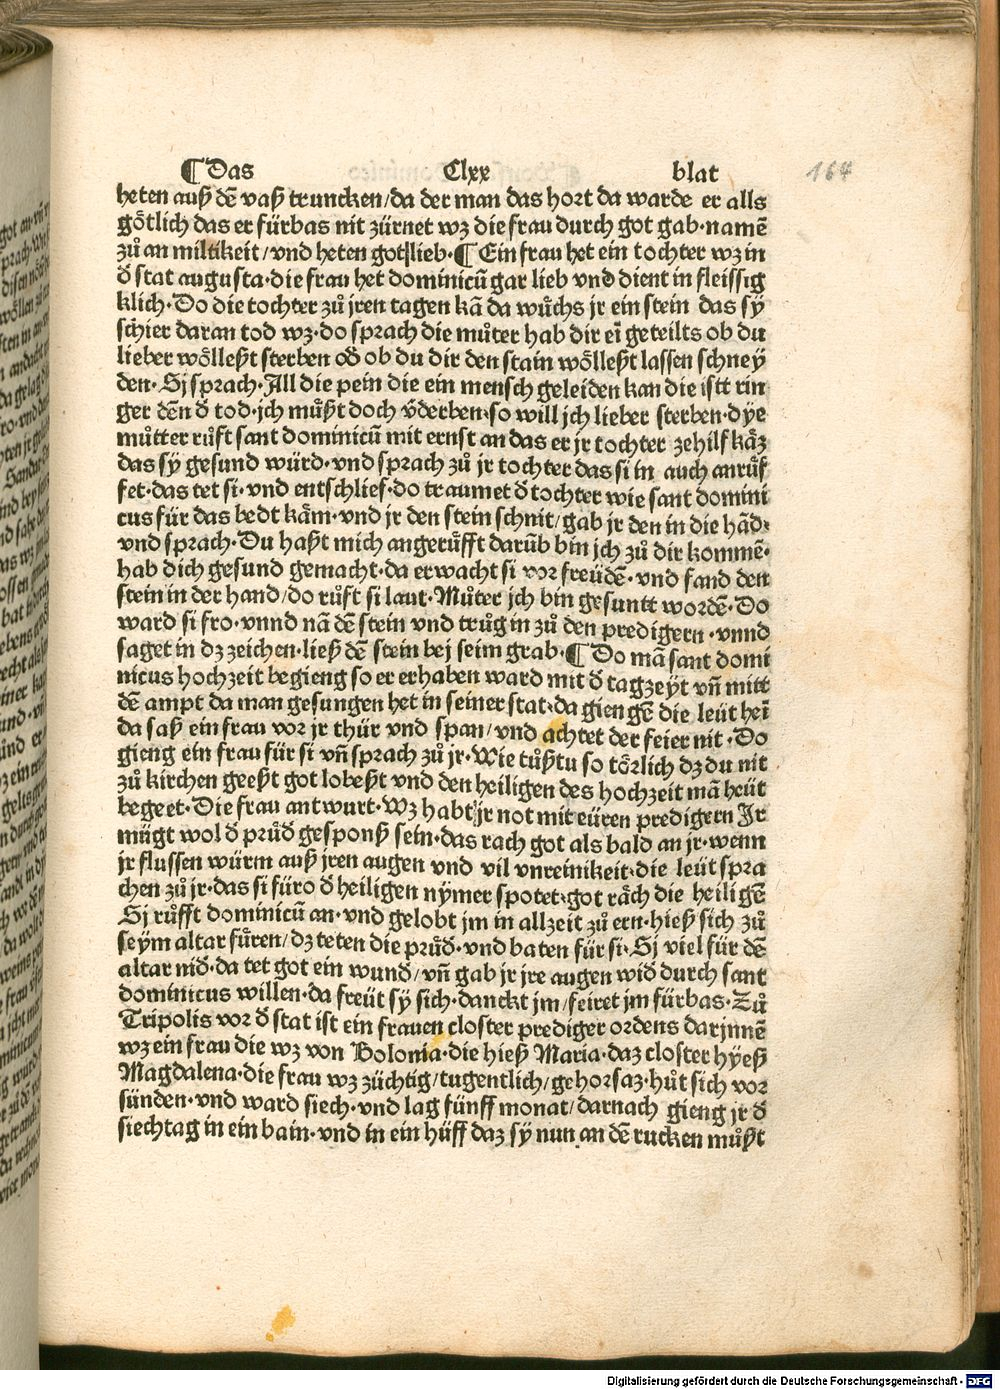 ¶Das Clxx blat 164
heten auß dē vaß truncken/da der man das hort da warde er alls
götlich das er fürbas nit zürnet wz die frau durch got gab·namē
zů an miltikeit/vnd heten got lieb·¶Ein frau het ein tochter wz in
d̕ stat augusta·die frau het dominicū gar lieb vnd dient in fleissig
klich·Do die tochter zů jren tagen kā da wůchs jr ein stein das sÿ
schier daran tod wz·do sprach die můter hab dir eī geteilts ob du
lieber wöllest sterben od̕ ob du dir den stain wöllest lassen schneÿ
den·Sj sprach·All die pein die ein mensch geleiden kan die istt rin
ger dēn d̕ tod·jch můst doch v̄derben·so will jch lieber sterben·dye
můtter růft sant dominicū mit ernst an das er jr tochter zehilf kāz
das sÿ gesund würd·vnd sprach zů jr tochter das si in auch anrůf
fet·das tet si·vnd entschlief·do traumet d̕ tochter wie sant domini
cus für das bedt käm·vnd jr den stein schnit/gab jr den in die hād·
vnd sprach·Du hast mich angerůfft darūb bin jch zů dir kommē·
hab dich gesund gemacht·da erwacht si vor freüdē·vnd fand den
stein in der hand/do růft si laut·Můter jch bin gesuntt wordē·Do
ward si fro·vnnd nā dē stein vnd trůg in zů den predigern·vnnd
saget in dz zeichen·ließ dē stein bej seim grab·¶Do mā sant domi
nicus hochzeit begieng so er erhaben ward mit d̕ tagzeÿt vn̄ mitt
dē ampt da man gesungen het in seiner stat·da giengē die leüt heī
da saß ein frau vor jr thür vnd span/vnd achtet der feier nit·Do
gieng ein frau für si vn̄ sprach zů jr·Wie tůstu so törlich dz du nit
zů kirchen geest got lobest vnd den heiligen des hochzeit mā heüt
begeet·Die frau antwurt·Wz habt jr not mit eüren predigern Jr
mügt wol d̕ průd̕ gesponß sein·das rach got als bald an jr·wenn
jr flussen würm auß jren augen vnd vil vnreinikeit·die leüt spra
chen zů jr·das si füro d̕ heiligen nÿmer spotet·got räch die heiligē
Sj růfft dominicū an·vnd gelobt jm in allzeit zů ern·hieß sich zů
seÿm altar füren/dz teten die průd̕·vnd baten für si·Sj viel für dē
altar nid̕·da tet got ein wund/vn̄ gab jr jre augen wid̕ durch sant
dominicus willen·da freüt sÿ sich·danckt jm/feiret jm fürbas·Zů
Tripolis vor d̕ stat ist ein frauen closter prediger ordens darjnnē
wz ein frau die wz von Bolonia·die hieß Maria·daz closter hÿeß
Magdalena·die frau wz züchtig/tugentlich/gehorsaz·hůt sich vor
sünden·vnd ward siech·vnd lag fünff monat/darnach gieng jr d̕
siechtag in ein bain·vnd in ein hüff daz sÿ nun an dē rucken můst
Digitalisierung gefördert durch die Deutsche Forschungsgemeinschaft - DFG